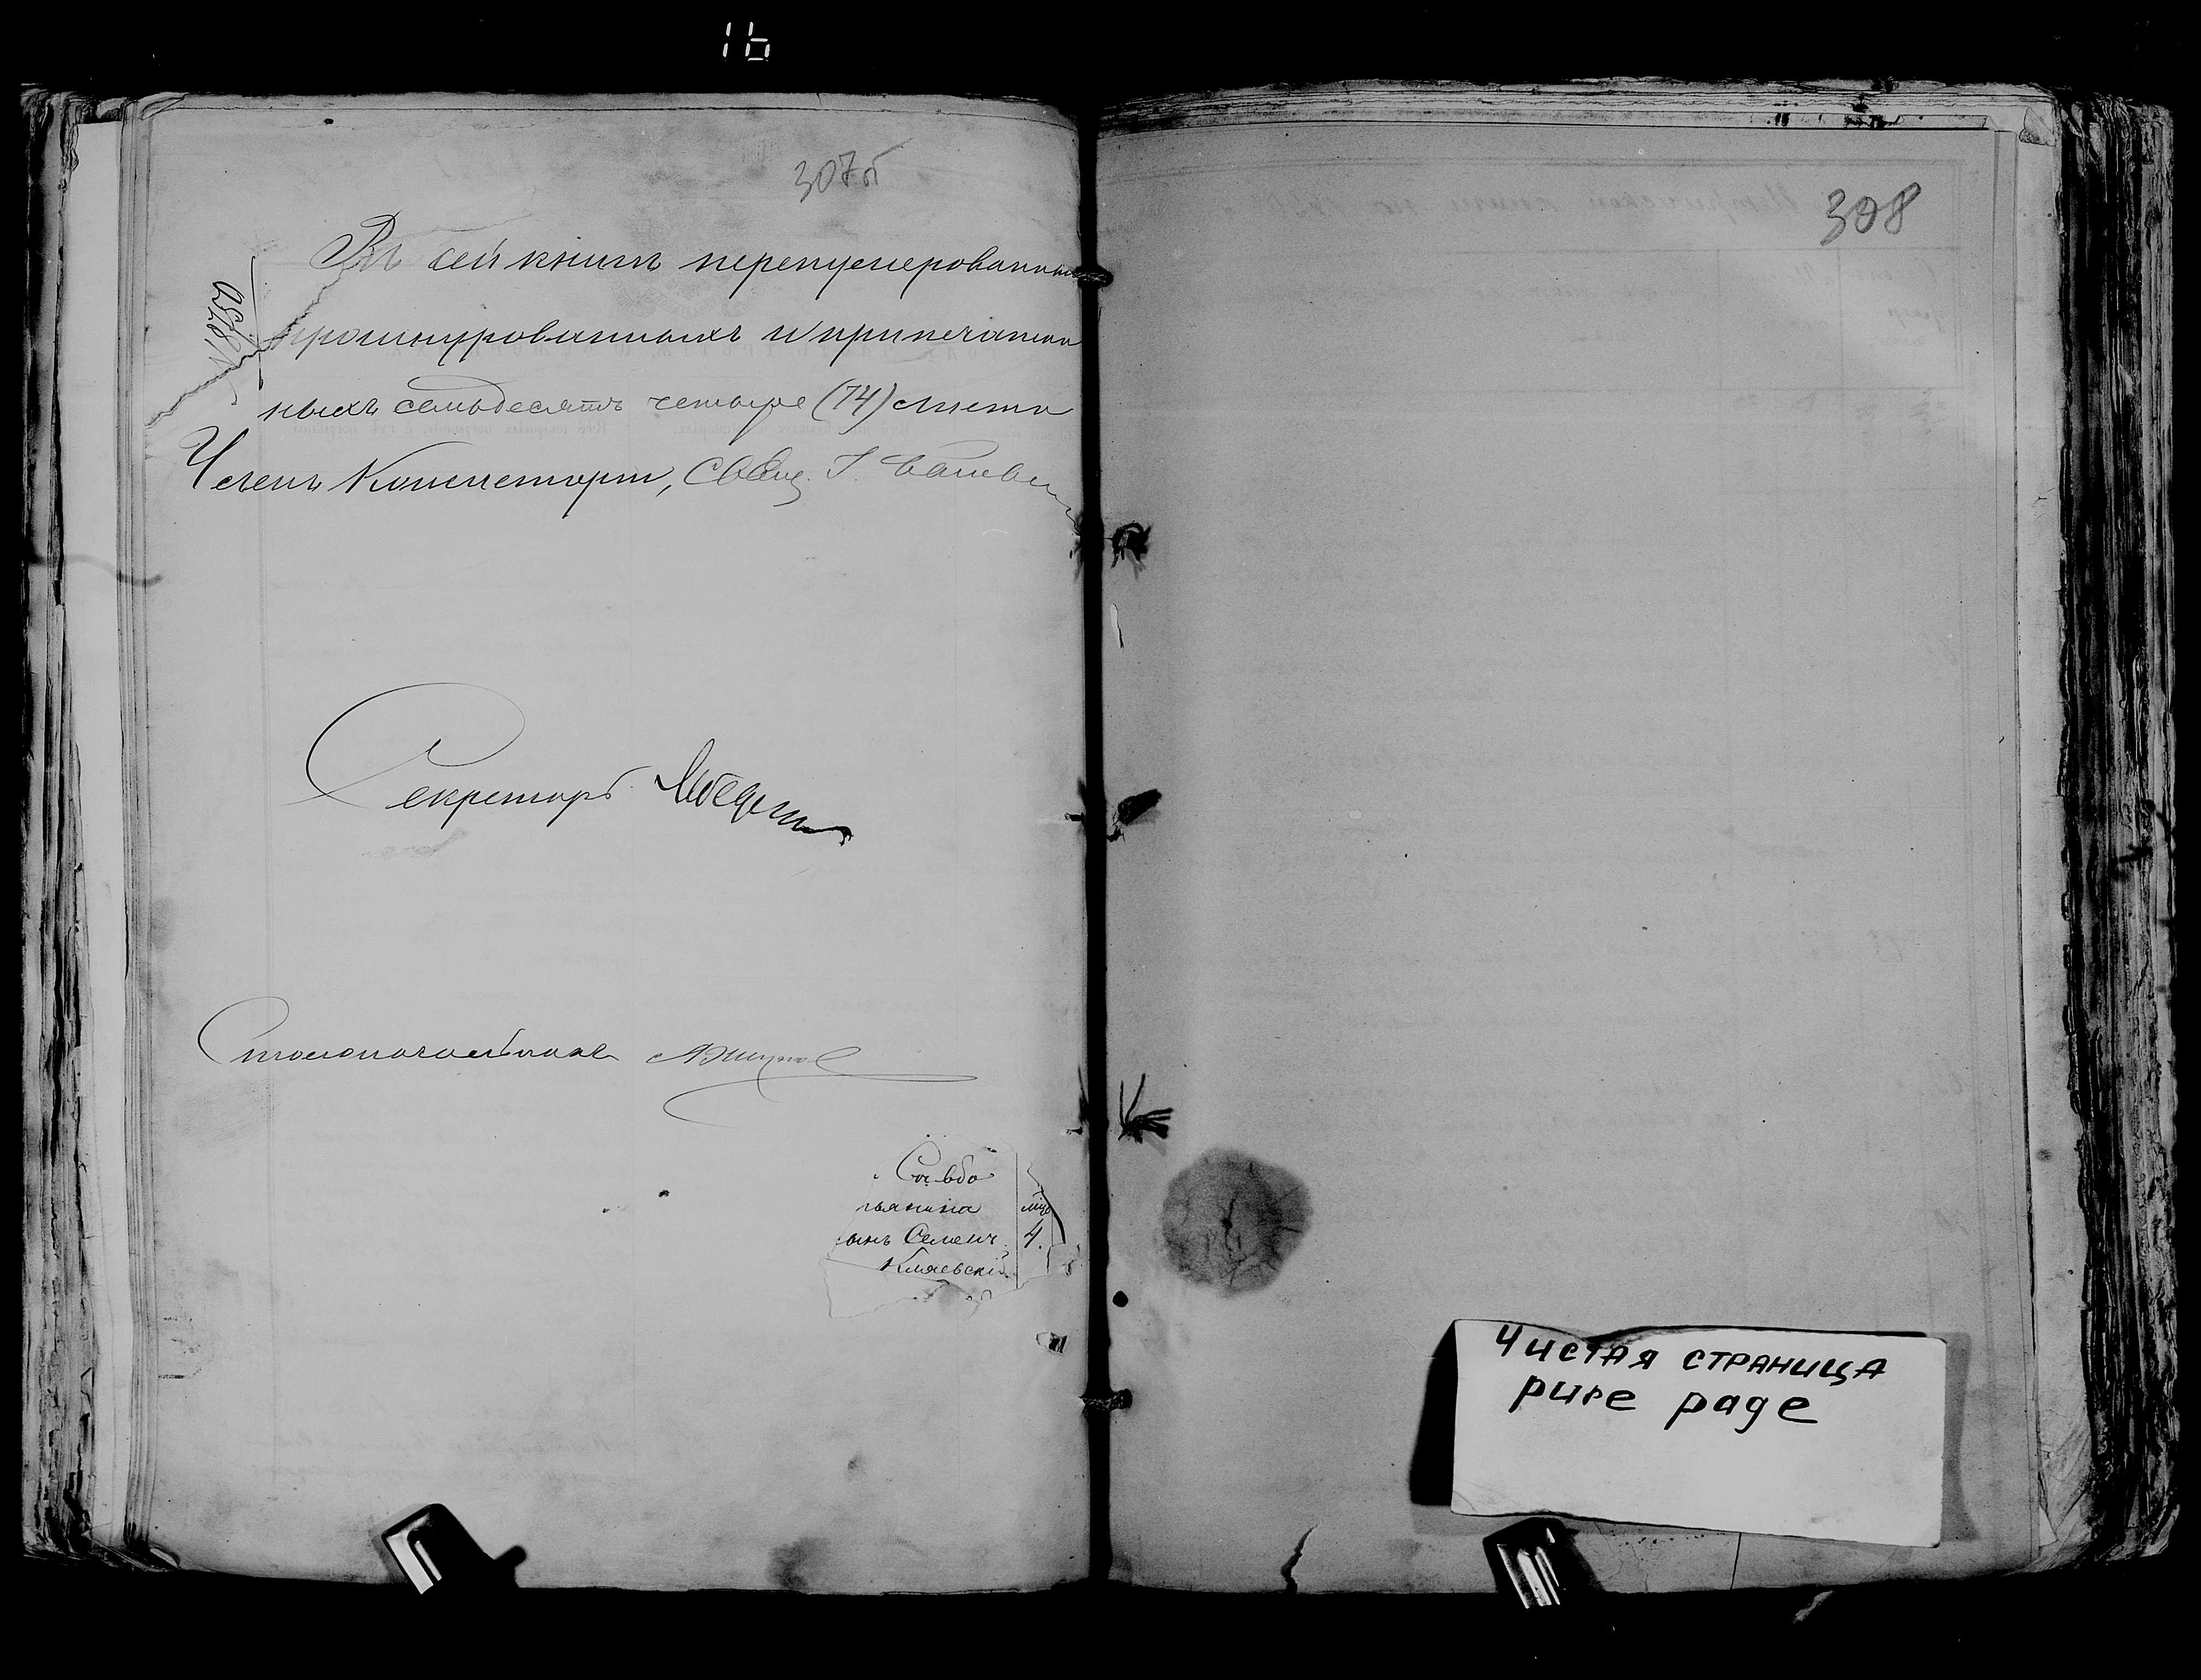 16
307б
Въ сей книгѣ перенумерованныхъ
прошнурованныхъ и припечатан
ныхъ семьдесятъ четыре (74) листа
Членъ Консисторіи, Свящ. І.
Секретарь
Столоначальникъ
Свадьбо
ьянина
ынъ Семенъ 4.
308
Чистая страница
pure page